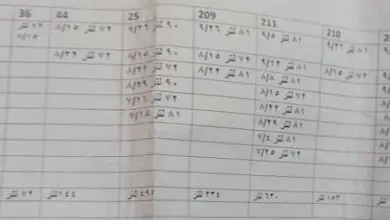 36 44 25 209 211 210
٧٢ لتر ٨/١٥
٧٢ لتر ٨/١٥
٩٠ لتر ٩/٢٦
٨١ لتر ٩/٢٦
٨١ لتر ٩/٥
٨١ لتر ٩/٢٦
٧٢ لتر ٨/٢٩
٨١ لتر ٨/١٥
٧٢ لتر ٨/١٥
٨١ لتر ٩/١٢
٧٢ لتر ٨/١٥
٧٢ لتر ٨/٢٢
٨١ لتر ٨/٢٢
٨١ لتر ٨/٨
٩٠ لتر ٨/٢٩
٧٢ لتر ٨/١٥
٧٢ لتر
٨١ لتر ٨/٢٢
٨١ لتر ٧/١٨
٨١ لتر ٨/٢٩
٨١ لتر ٧/٤
٧٢ لتر ٧/٢٥
٧٢ لتر
١٤٤ لتر
٤٩٥ لتر
٢٣٤ لتر
٦٣٠ لتر
١٥٣ لتر